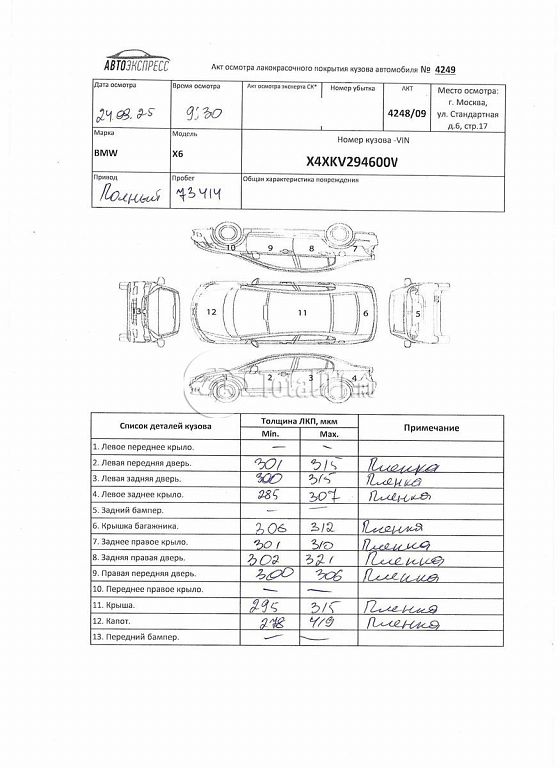 АВТОЭКСПРЕСС
Акт осмотра лакокрасочного покрытия кузова автомобиля № 4249
Дата осмотра Время осмотра Акт осмотра эксперта СК* Номер убытка АКТ Место осмотра:
24.03.25 9:30 4248/09 г. Москва,
ул. Стандартная
д.6, стр.17
Марка Модель Номер кузова -VIN
BMW X6 X4XKV294600V
Привод Пробег Общая характеристика повреждений
Полный 73414
10 9 8 7
13 12 11 6 5
1 2 3 4
Список деталей кузова Толщина ЛКП, мкм Примечание
Min. Max.
1. Левое переднее крыло. — —
2. Левая передняя дверь. 301 315 Пленка
3. Левая задняя дверь. 300 315 Пленка
4. Левое заднее крыло. 285 307 Пленка
5. Задний бампер. — —
6. Крышка багажника. 306 312 Пленка
7. Заднее правое крыло. 301 310 Пленка
8. Задняя правая дверь. 302 321 Пленка
9. Правая передняя дверь. 300 306 Пленка
10. Переднее правое крыло. — —
11. Крыша. 295 315 Пленка
12. Капот. 278 419 Пленка
13. Передний бампер. — —